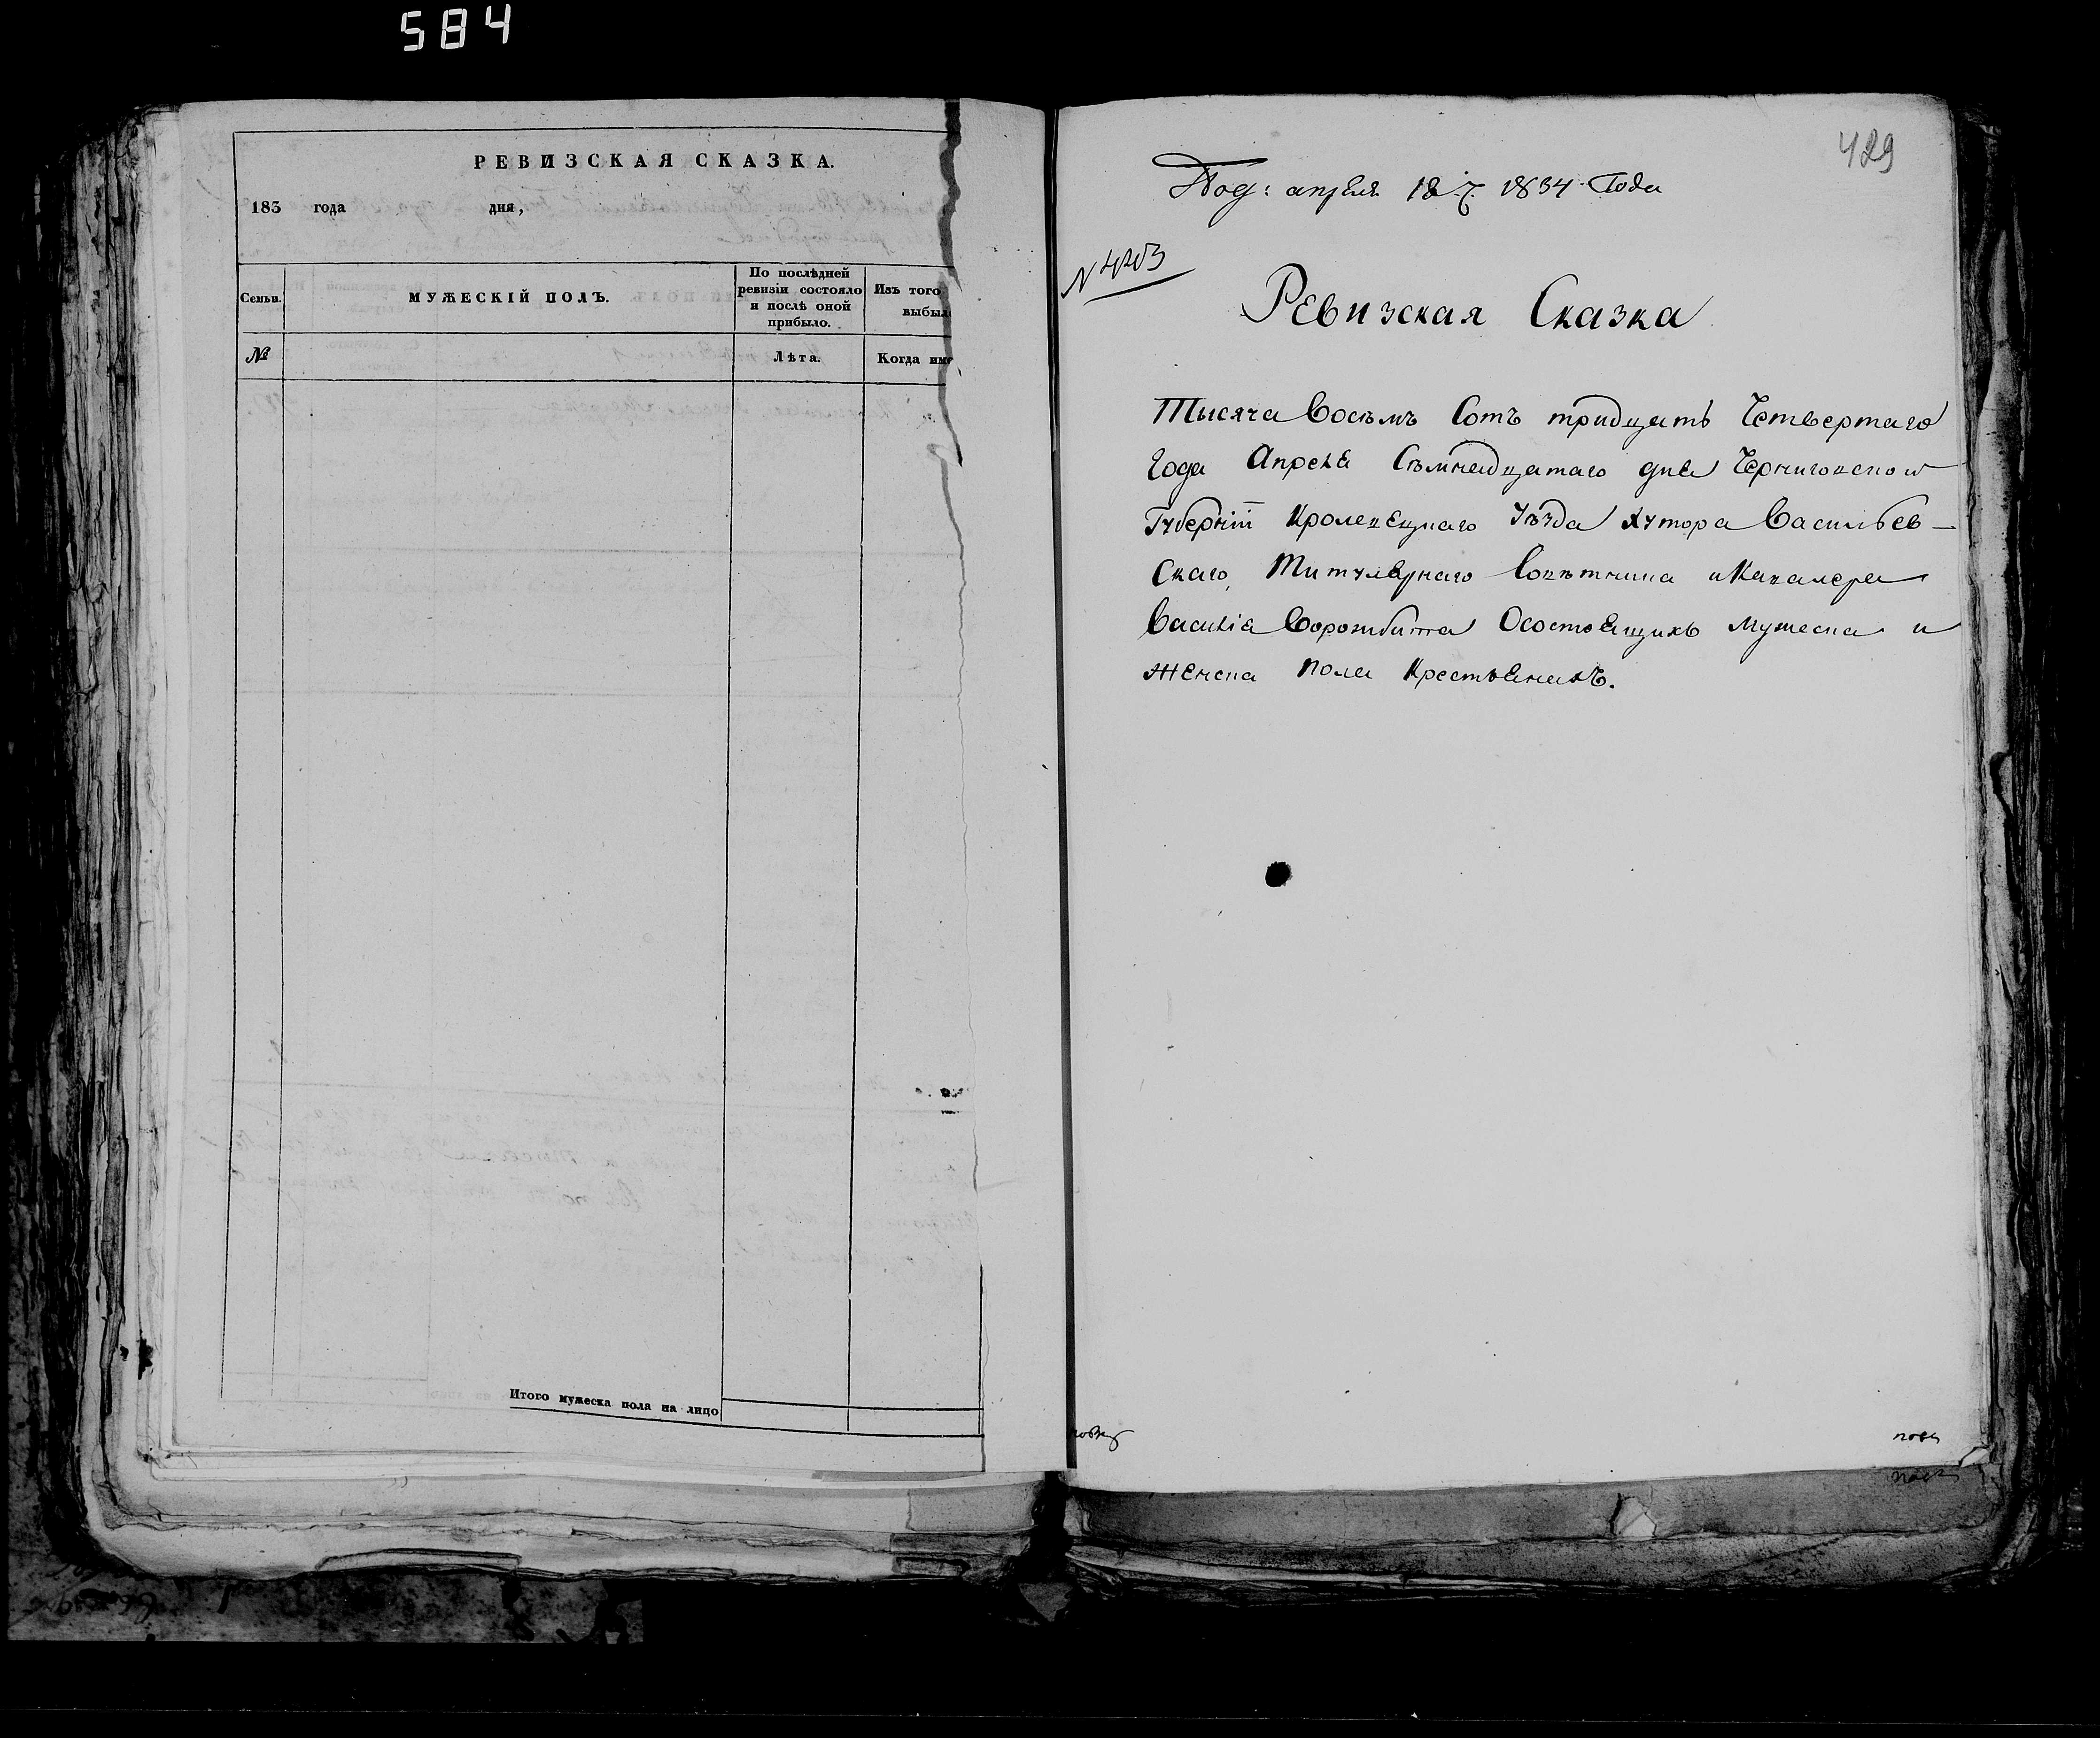 584
РЕВИЗСКАЯ СКАЗКА.
183 года дня,
Семьи.
МУЖЕСКІЙ ПОЛЪ.
По послѣдней
ревизіи состояло
и послѣ оной
прибыло.
Изъ того
выбыл
№
Лѣта.
Когда им
Итого мужеска пола на лицо
429
Под: апреля 1834 Года
Ревизская Сказка
Тысяча Восѣмъ Сотъ тридцать Четвертаго
Года Апреля Сѣмнадцатаго дня Черниговской
Губерніи Кролевецкаго Уѣзда Хутора Васильев-
Скаго, Титулярнаго Совѣтника и Кавалера
Василія Ворожбита Осостоящихъ мужеска и
женска пола Крестьянахъ.